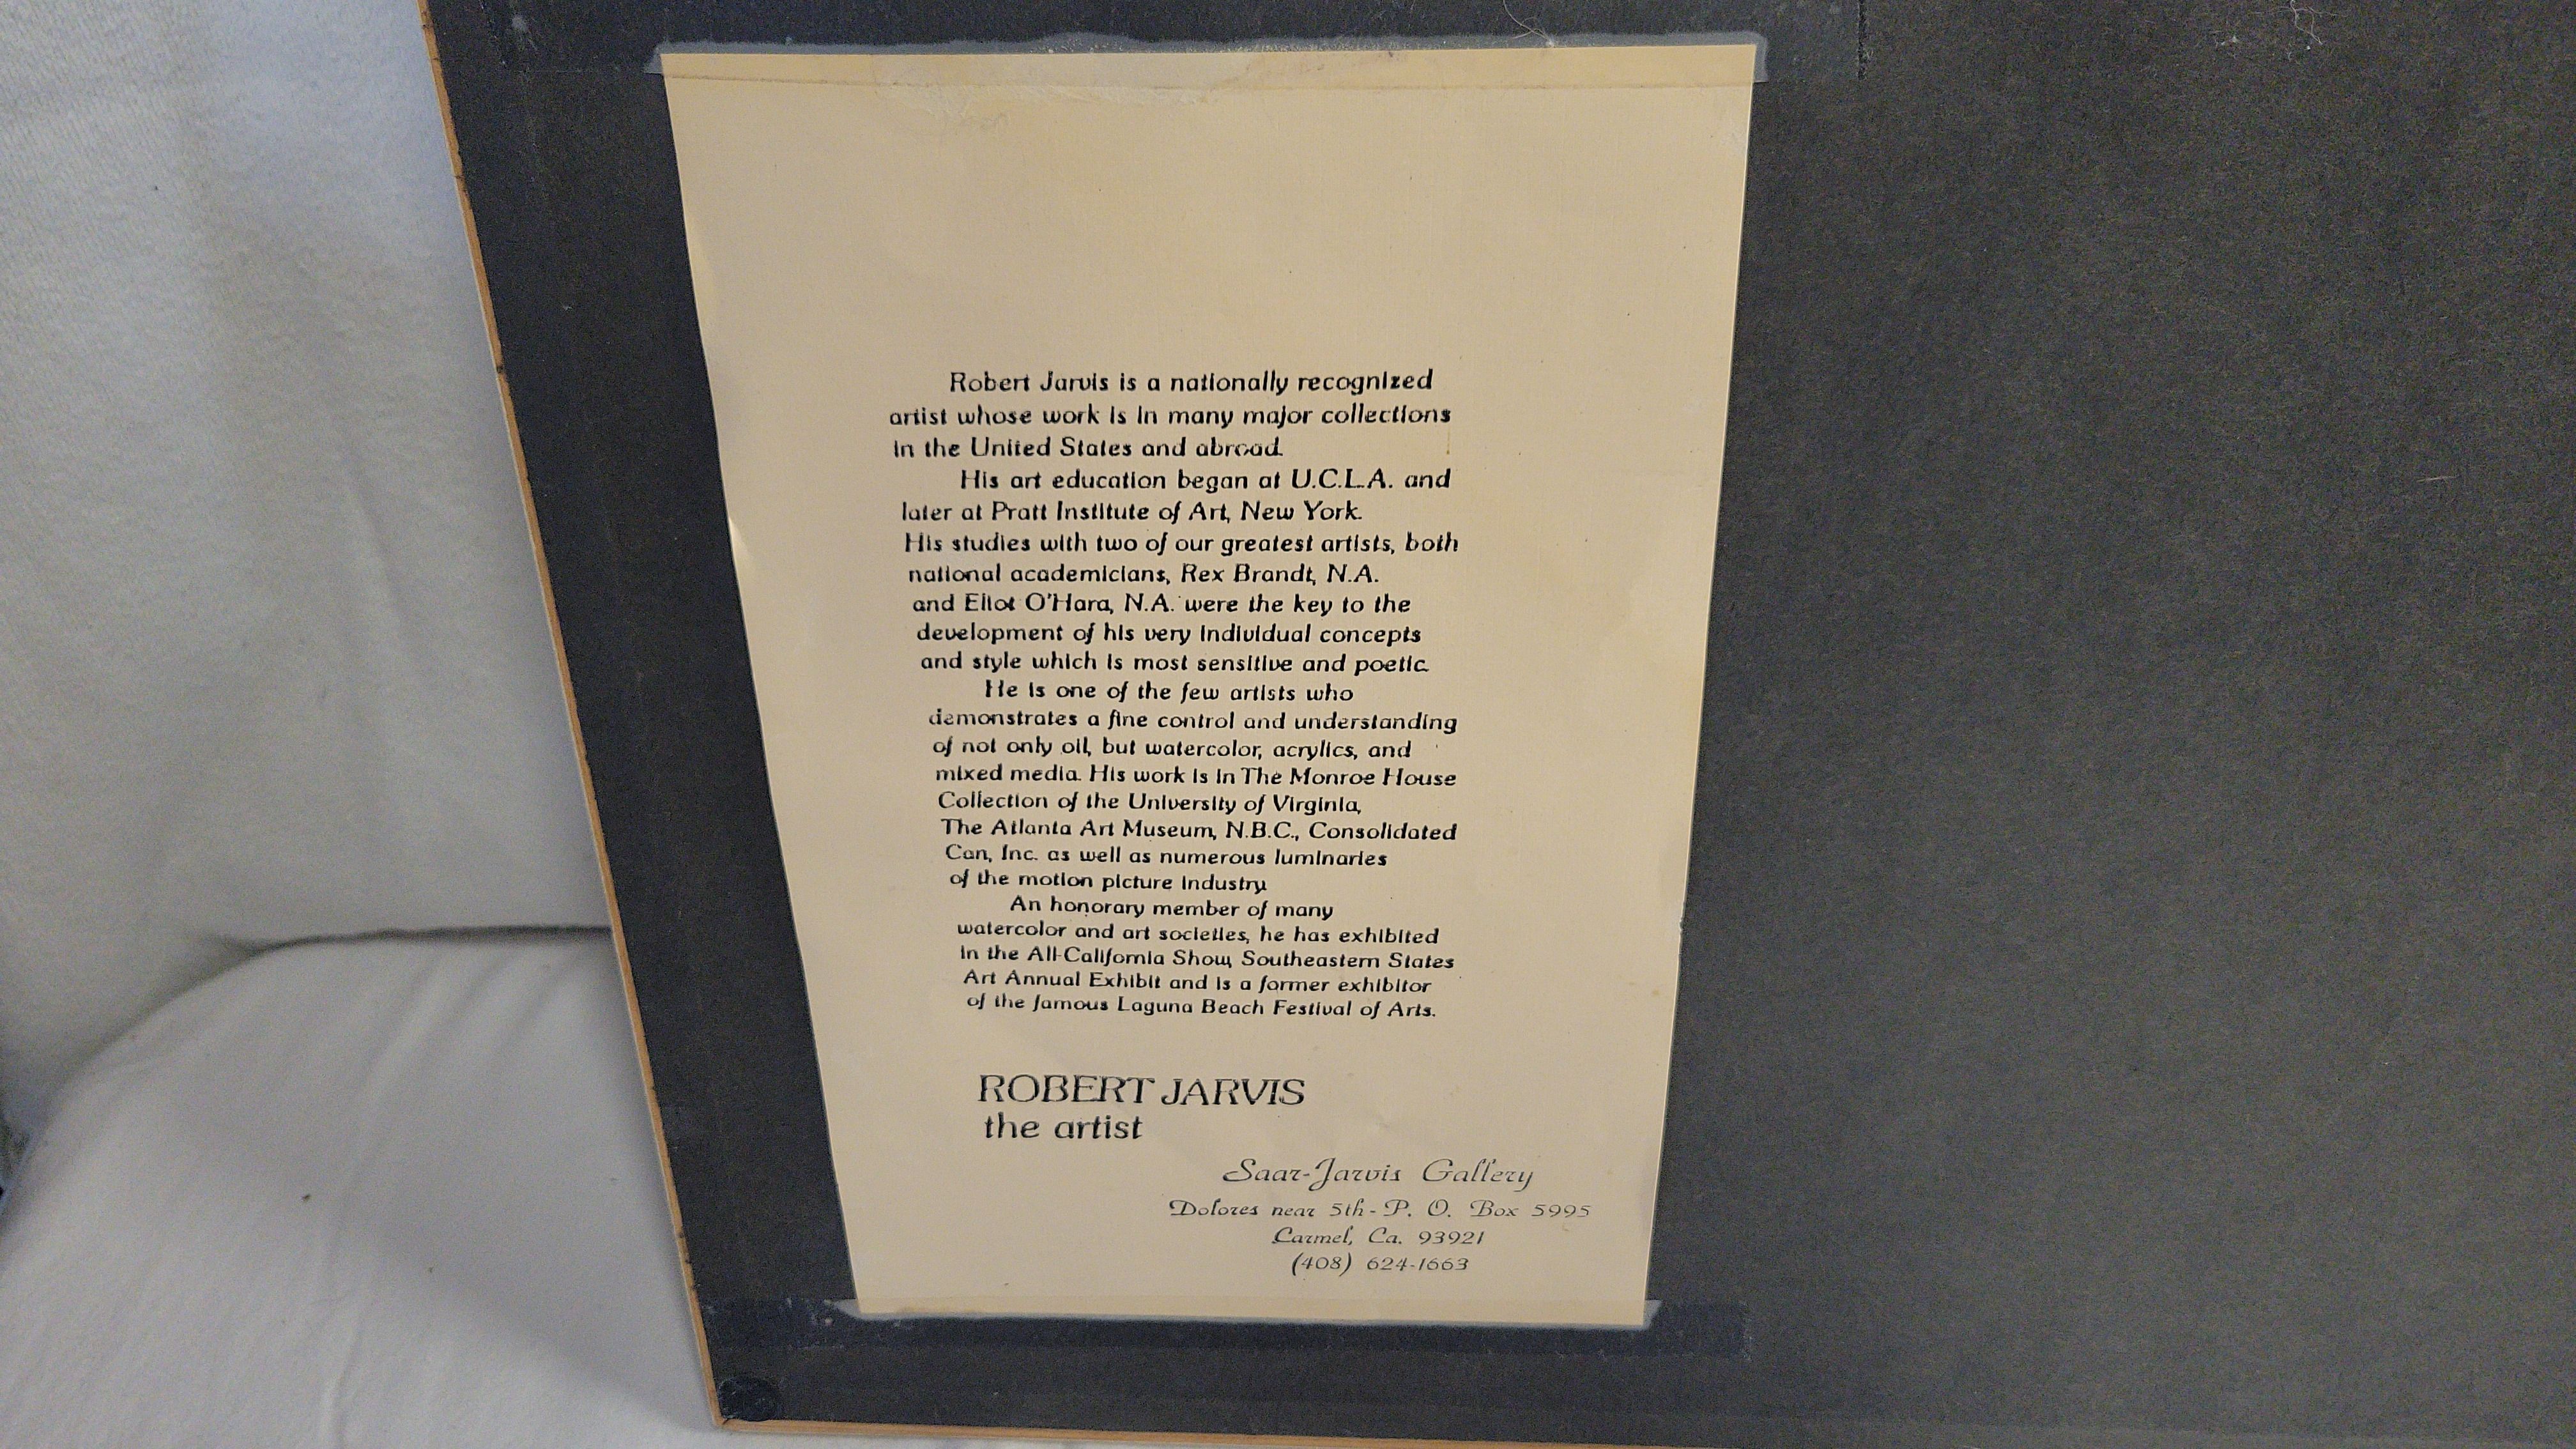 Robert Jarvis is a nationally recognized
artist whose work is in many major collections
in the United States and abroad.
His art education began at U.C.L.A. and
later at Pratt Institute of Art, New York.
His studies with two of our greatest artists, both
national academicians, Rex Brandt, N.A.
and Eliot O'Hara, N.A. were the key to the
development of his very individual concepts
and style which is most sensitive and poetic.
He is one of the few artists who
demonstrates a fine control and understanding
of not only oil, but watercolor, acrylics, and
mixed media. His work is in The Monroe House
Collection of the University of Virginia,
The Atlanta Art Museum, N.B.C., Consolidated
Can, Inc. as well as numerous luminaries
of the motion picture industry.
An honorary member of many
watercolor and art societies, he has exhibited
in the All-California Show, Southeastern States
Art Annual Exhibit and is a former exhibitor
of the famous Laguna Beach Festival of Arts.
ROBERT JARVIS
the artist
Saar-Jarvis Gallery
Dolores near 5th - P. O. Box 5995
Carmel, Ca. 93921
(408) 624-1663